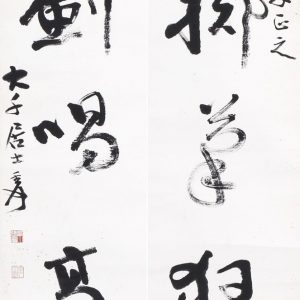 正之
擲筆狂
劍唱高
大千居士爰